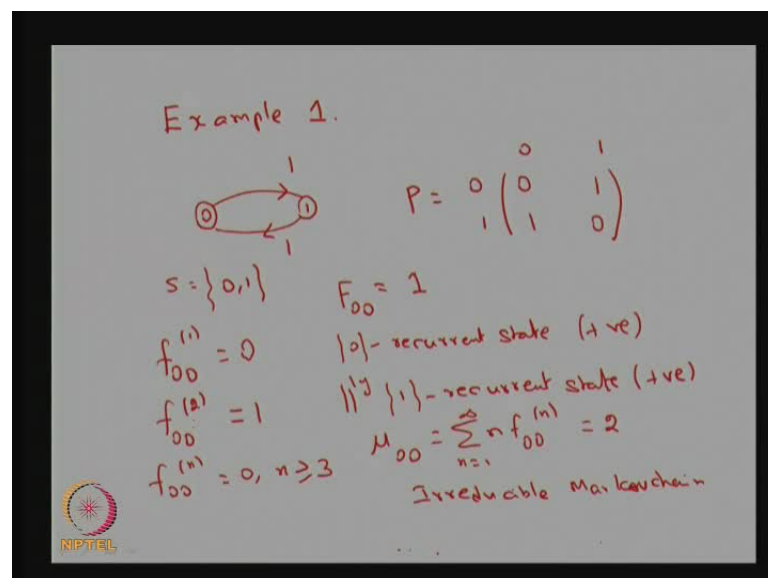 Example 1.
1
0 1
1
P = 0 1
0 ( 0 1
1 1 0 )
S = {0,1}
F00 = 1
f00^(1) = 0
{0} - recurrent state (+ve)
f00^(2) = 1
|||ly {1} - recurrent state (+ve)
μ00 = ∑ n=1 ∞ n f00^(n) = 2
f00^(n) = 0, n ≥ 3
Irreducible Markov chain
NPTEL